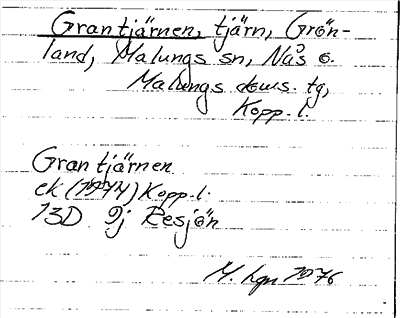 Grantjärnen, tjärn, Grön-
land, Malungs sn, Nås o.
Malungs doms. tg,
Kopp. l.
Grantjärnen
ek (1974) Kopp. l.
13D 9j Resjön
M. hgn 1976